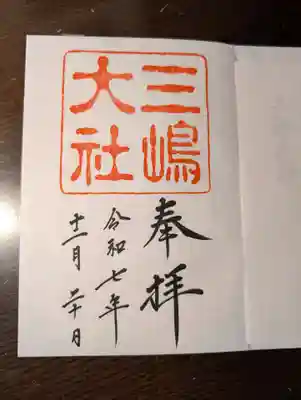 三嶋
大社
奉拝
令和七年
十二月二十日